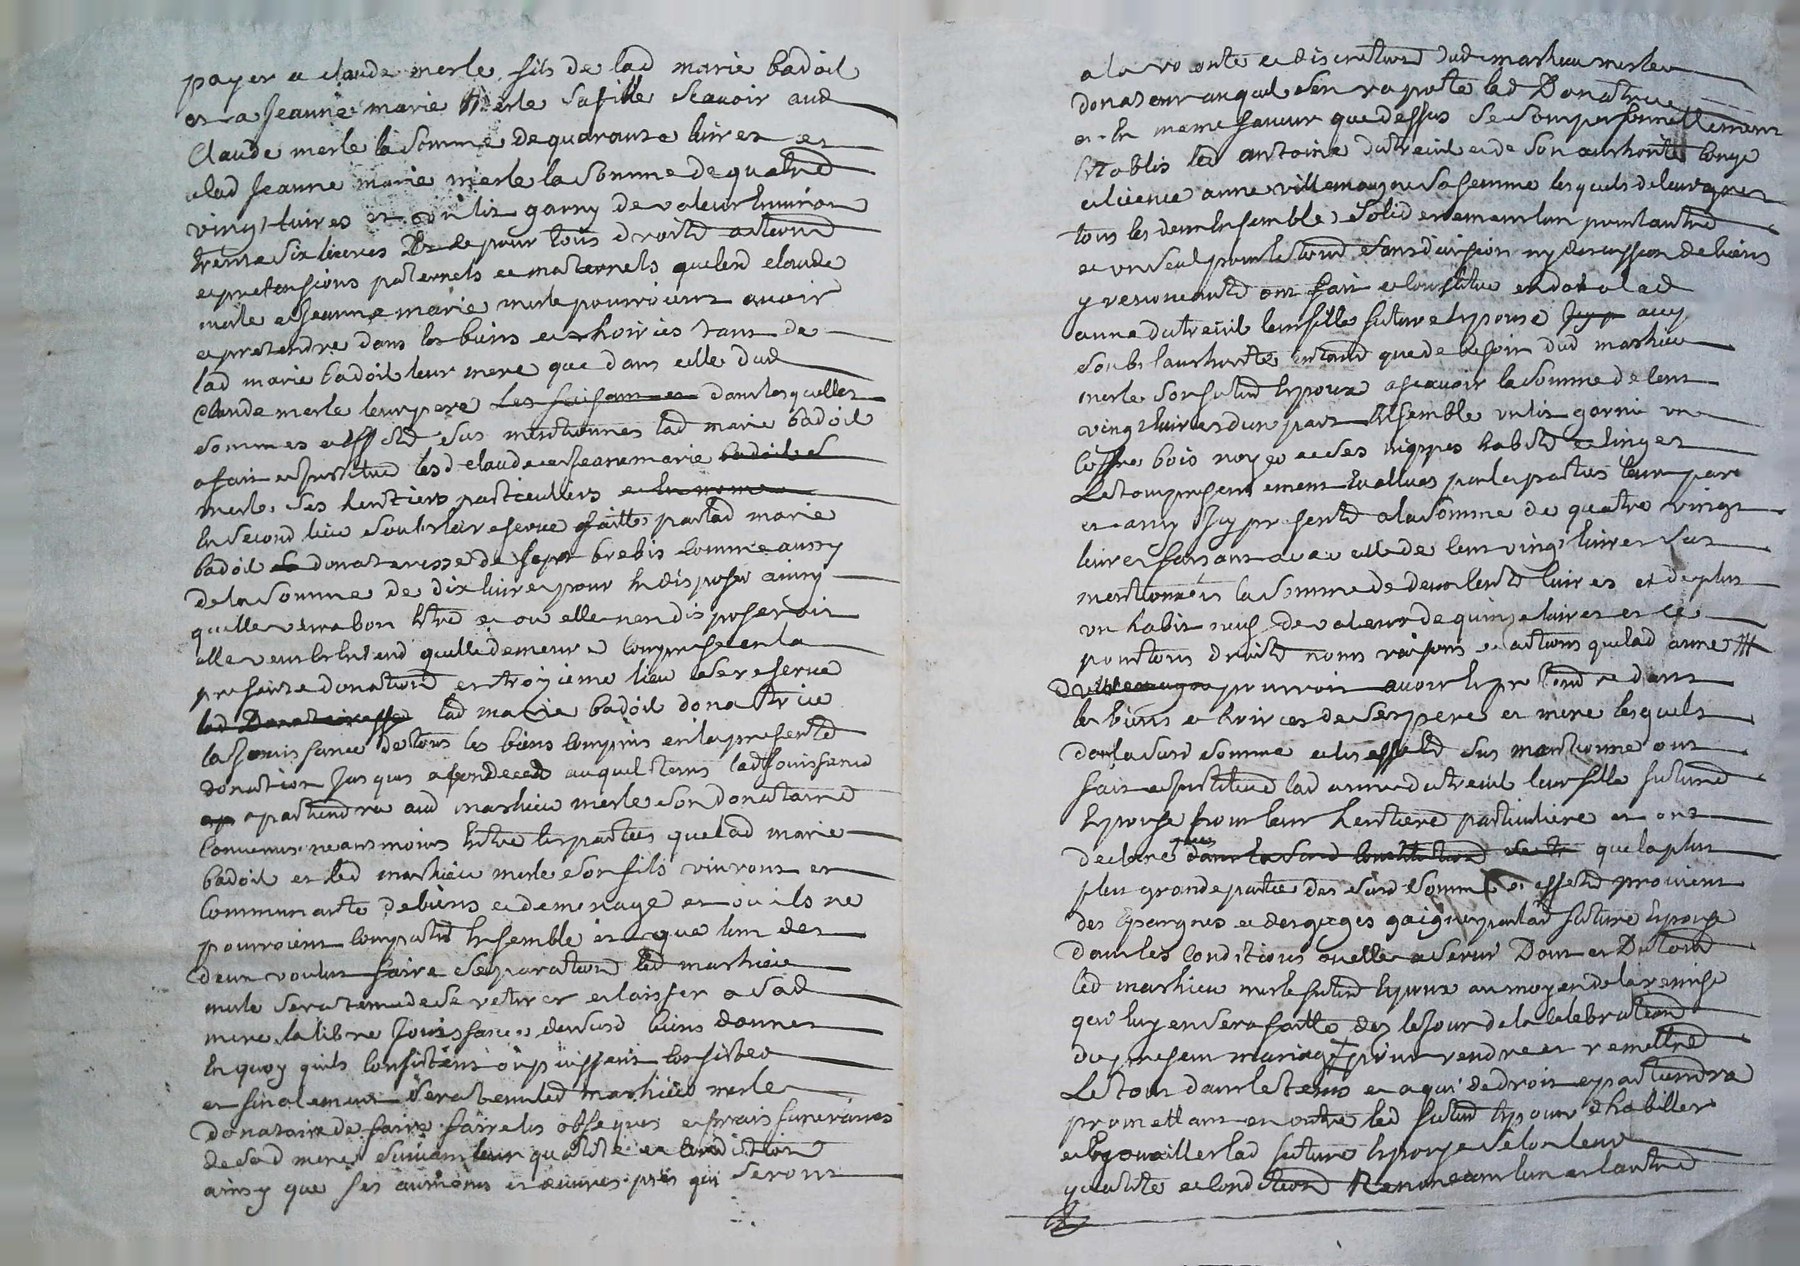 payer a claude merle fils de lad marie badoil
et a Jeanne marie Merle sa fille scavoir aud
Claude merle la somme de quarante livres et
a lad Jeanne marie merle la somme de quatre
vingt livres et un lit garny de valeur environ
trente six livres pour tous droits actions
et pretensions paternels et maternels que lesd claude
merle et Jeanne marie merle pourroient avoir
et pretendre dans les biens et hoiries tant de
lad marie badoil leur mere que dans celle dud
Claude merle leur pere les faisant et dans lesquelles
sommes et effets sus mentionnes lad marie badoil
a fait et institue lesd claude et Jeane marie badoil
merle ses heritiers particuliers et en mome
En second lieu soub la reserve faitte par lad marie
badoil donateresse de sept brebis comme aussy
de la somme de dix livres pour en disposer ainsy
quelle verra bon etre et ou elle nen disposeroit
elle veut et entend quelle demeure comprise en la
presente donation et troizieme lieu se reserve
lad Donateresse lad marie badoil donatrice
la Jouissance de tous les biens compris en la presente
donation Jusques a son deced auquel tems lad Jouissance
apartiendra aud mathieu merle son donataire
Convenu neanmoins entre les parties que lad marie
badoil et led mathieu merle son fils vivront en
Communaute de biens et de menage et ou ils ne
pourroient compatir ensemble et que lun des
deux voulut faire separation led mathieu
merle sera tenu de se retirer et laisser a sad
mere la libre Jouissance desusd biens donnes
En quoy quils consistent ou puissent consister
et finalement sera tenu led mathieu merle
donataire de faire faire les obseques et frais funeraires
de sad mere suivant leur qualite et condition
ainsy que ses aumones et œuvres pies qui seront
a la volonte et discretion dud mathieu merle
donateur auquel sen raporte lad Donatrice
et en meme faveur que dessus se sont personnellement
Etablis led antoine dutreuil et de son authorite conge
et licence anne villemagne sa femme lesquels de leur gre
tous les deux Ensemble solidairement lun pour lautre
et un seul pour le tout sans division ny discussion de biens
y renonceants ont fait et constitue en dot a lad
anne dutreuil leur fille future Epouse Icy acy
soub lauthorite en tand que de besoin dud mathieu
merle son futur Epoux a scavoir la somme de cent
vingt livres dun part Ensemble un lit garni un
Coffre bois noyer et ses nippes habits et linges
Le tout presentement Evallues par les parties leur pare
et amy Icy presents a la somme de quatre vingt
livres faisant avec celle de cent vingt livres sus
mentionnees la somme de deux cents livres et de plus
un habit neuf de valeur de quinze livres et ce
pour tous droits noms raisons et actions que lad anne
dvillemagne pourroit avoir et pretendre dans
les biens et hoiries de ses pere et mere lesquels
dans la susd somme et les effets sus mantionne ont
fait et institue lad anne dutreuil leur fille future
Epouse pour leur heritiere particuliere et ont
declare dans la susd constitution que la plus
plus grande partie des susd sommes et effets provient
des Epargnes et des gages gaignes par lad future Epouse
dans les conditions ou elle a servi Dont et Du tout
led mathieu merle futur Epoux au moyen de la remise
qui luy en sera faitte des le Jour de la celebration
du present mariage pour rendre et remettre
Le tout dans le tems et a qui de droit apartiendra
promettant en outre led futur Epoux dhabiller
et Enjouailler lad future Epouse selon leur
qualite et condition Renoncant lun et lautre